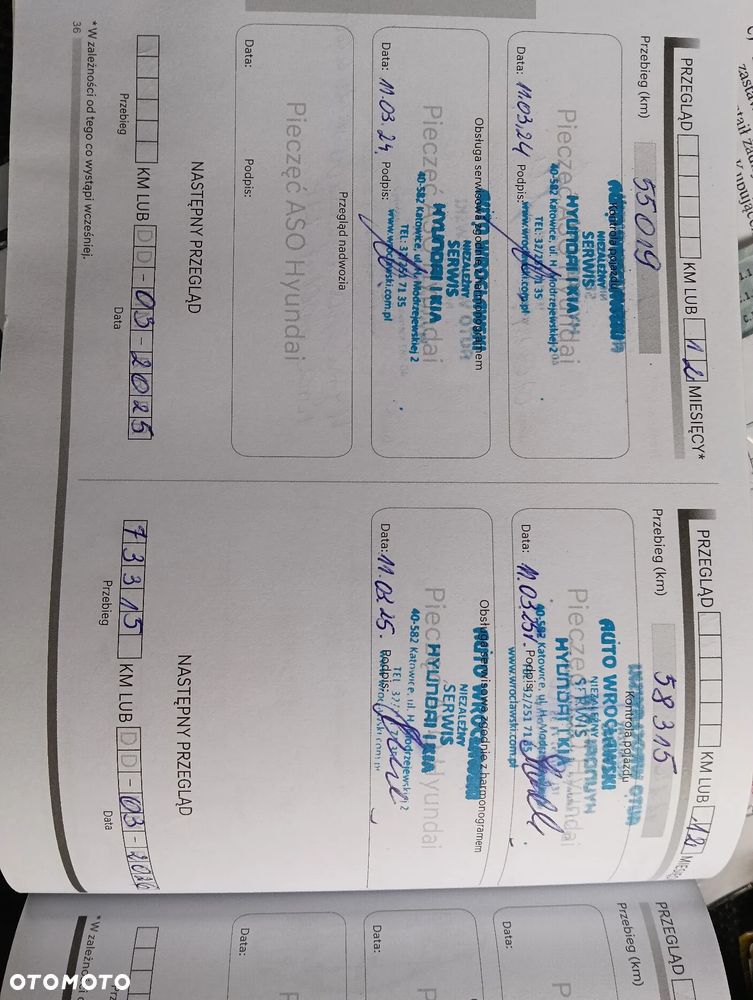 PRZEGLĄD KM LUB 12 MIESIĘCY*
Przebieg (km) 55019
Kontrola pojazdu
Pieczęć ASO Hyundai
NIEZALEŻNY
SERWIS
HYUNDAI I KIA
40-582 Katowice, ul. H. Modrzejewskiej 2
TEL: 32/251 71 35
www.wroclawski.com.pl
Data: 11.03.24 Podpis:
Obsługa serwisowa zgodnie z harmonogramem
Pieczęć ASO Hyundai
NIEZALEŻNY
SERWIS
HYUNDAI I KIA
40-582 Katowice, ul. H. Modrzejewskiej 2
TEL: 32/251 71 35
www.wroclawski.com.pl
Data: 11.03.24. Podpis:
Przegląd nadwozia
Pieczęć ASO Hyundai
Data: Podpis:
NASTĘPNY PRZEGLĄD
KM LUB DD-03-2025
Przebieg Data
* W zależności od tego co wystąpi wcześniej.
36
PRZEGLĄD KM LUB 12
Przebieg (km) 58315
Kontrola pojazdu
AUTO WROCŁAWSKI
NIEZALEŻNY
SERWIS
HYUNDAI I KIA
40-582 Katowice, ul. H. Modrzejewskiej
www.wroclawski.com.pl
Data: 11.03.25r. Podpis:
Obsługa serwisowa zgodnie z harmonogramem
AUTO WROCŁAWSKI
NIEZALEŻNY
SERWIS
HYUNDAI I KIA
40-582 Katowice, ul. H. Modrzejewskiej 2
Data: 11.03.25. Podpis:
NASTĘPNY PRZEGLĄD
73315 KM LUB DD-03-2026
Przebieg Data
PRZEGLĄD
Przebieg (km)
Data:
Data:
Data:
* W zależności
OTOMOTO